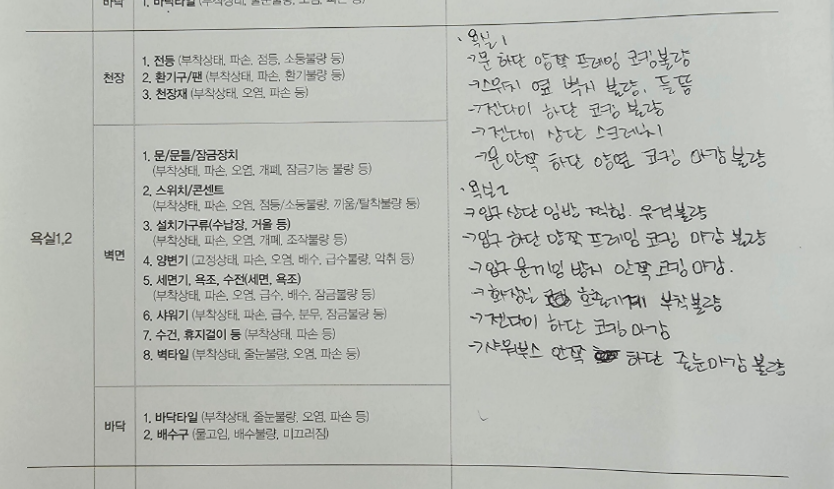 바닥
1. 바닥타일 (부착상태, 줄눈불량, 오염, 파손 등)
욕실1,2
천장
1. 전등 (부착상태, 파손, 점등, 소등불량 등)
2. 환기구/팬 (부착상태, 파손, 환기불량 등)
3. 천장재 (부착상태, 오염, 파손 등)
벽면
1. 문/문틀/잠금장치
(부착상태, 파손, 오염, 개폐, 잠금기능 불량 등)
2. 스위치/콘센트
(부착상태, 파손, 오염, 점등/소등불량, 끼움/탈착불량 등)
3. 설치가구류(수납장, 거울 등)
(부착상태, 파손, 오염, 개폐, 조작불량 등)
4. 양변기 (고정상태, 파손, 오염, 배수, 급수불량, 악취 등)
5. 세면기, 욕조, 수전(세면, 욕조)
(부착상태, 파손, 오염, 급수, 배수, 잠금불량 등)
6. 샤워기 (부착상태, 파손, 급수, 분무, 잠금불량 등)
7. 수건, 휴지걸이 등 (부착상태, 파손 등)
8. 벽타일 (부착상태, 줄눈불량, 오염, 파손 등)
바닥
1. 바닥타일 (부착상태, 줄눈불량, 오염, 파손 등)
2. 배수구 (물고임, 배수불량, 미끄러짐)
· 욕실1
→ 문 하단 양쪽 프레임 코킹불량
→ 스위치 옆 벽지 불량, 들뜸
→ 젠다이 하단 코킹 불량
→ 젠다이 상단 스크래치
→ 문 안쪽 하단 양옆 코킹 마감 불량
· 욕실2
→ 입구 상단 임방 찍힘. 유격불량
→ 입구 하단 양쪽 프레임 코킹 마감 불량
→ 입구 문끼임 방지 안쪽 코킹 마감.
→ 화장실 호출기계 부착불량
→ 젠다이 하단 코킹 마감
→ 샤워부스 안쪽 하단 줄눈마감 불량